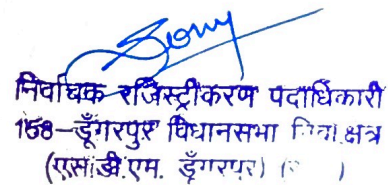 निर्वाचक रजिस्ट्रीकरण पदाधिकारी
158-डूँगरपुर विधानसभा क्षेत्र
(एस.डी.एम. डूँगरपुर)